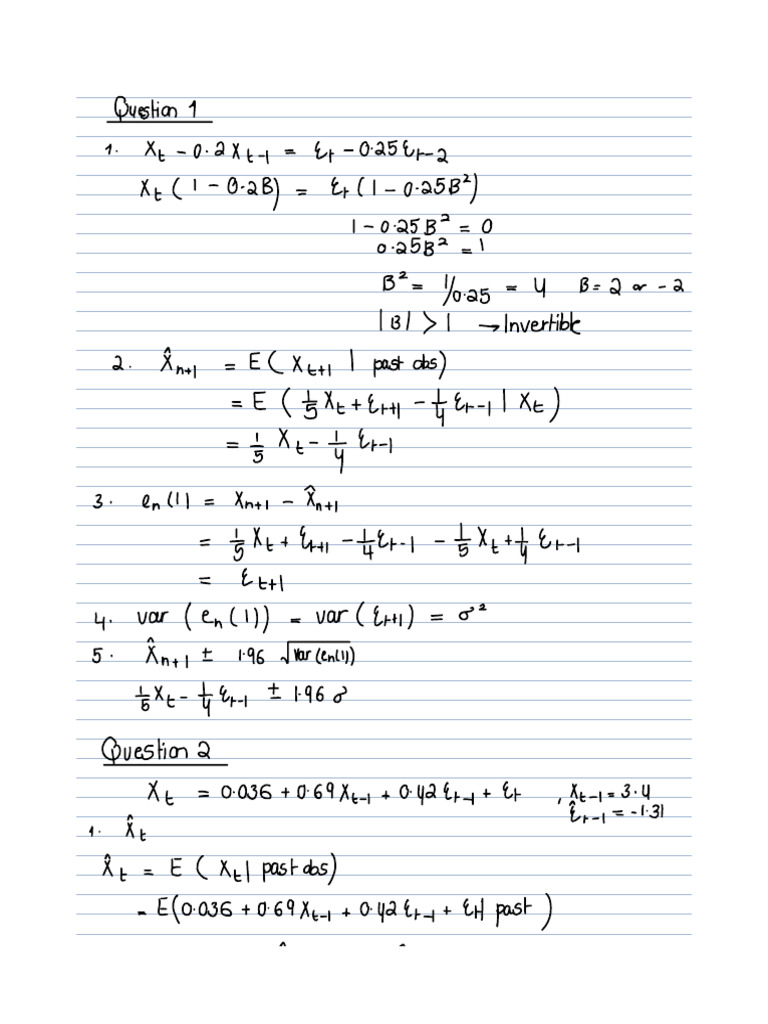 Question 1
1. Xt - 0.2Xt-1 = εt - 0.25εt-2
Xt (1 - 0.2B) = εt (1 - 0.25B²)
1 - 0.25B² = 0
0.25B² = 1
B² = 1/0.25 = 4 B = 2 or -2
|B| > 1 → Invertible
2. X̂n+1 = E(Xt+1 | past obs)
= E(1/5 Xt + εt+1 - 1/4 εt-1 | Xt)
= 1/5 Xt - 1/4 εt-1
3. en(1) = Xn+1 - X̂n+1
= 1/5 Xt + εt+1 - 1/4 εt-1 - 1/5 Xt + 1/4 εt-1
= εt+1
4. var(en(1)) = var(εt+1) = σ²
5. X̂n+1 ± 1.96 √var(en(1))
1/5 Xt - 1/4 εt-1 ± 1.96 σ
Question 2
Xt = 0.036 + 0.69Xt-1 + 0.42εt-1 + εt , Xt-1 = 3.4
ε̂t-1 = -1.31
1. X̂t
X̂t = E(Xt | past obs)
= E(0.036 + 0.69Xt-1 + 0.42εt-1 + εt | past)